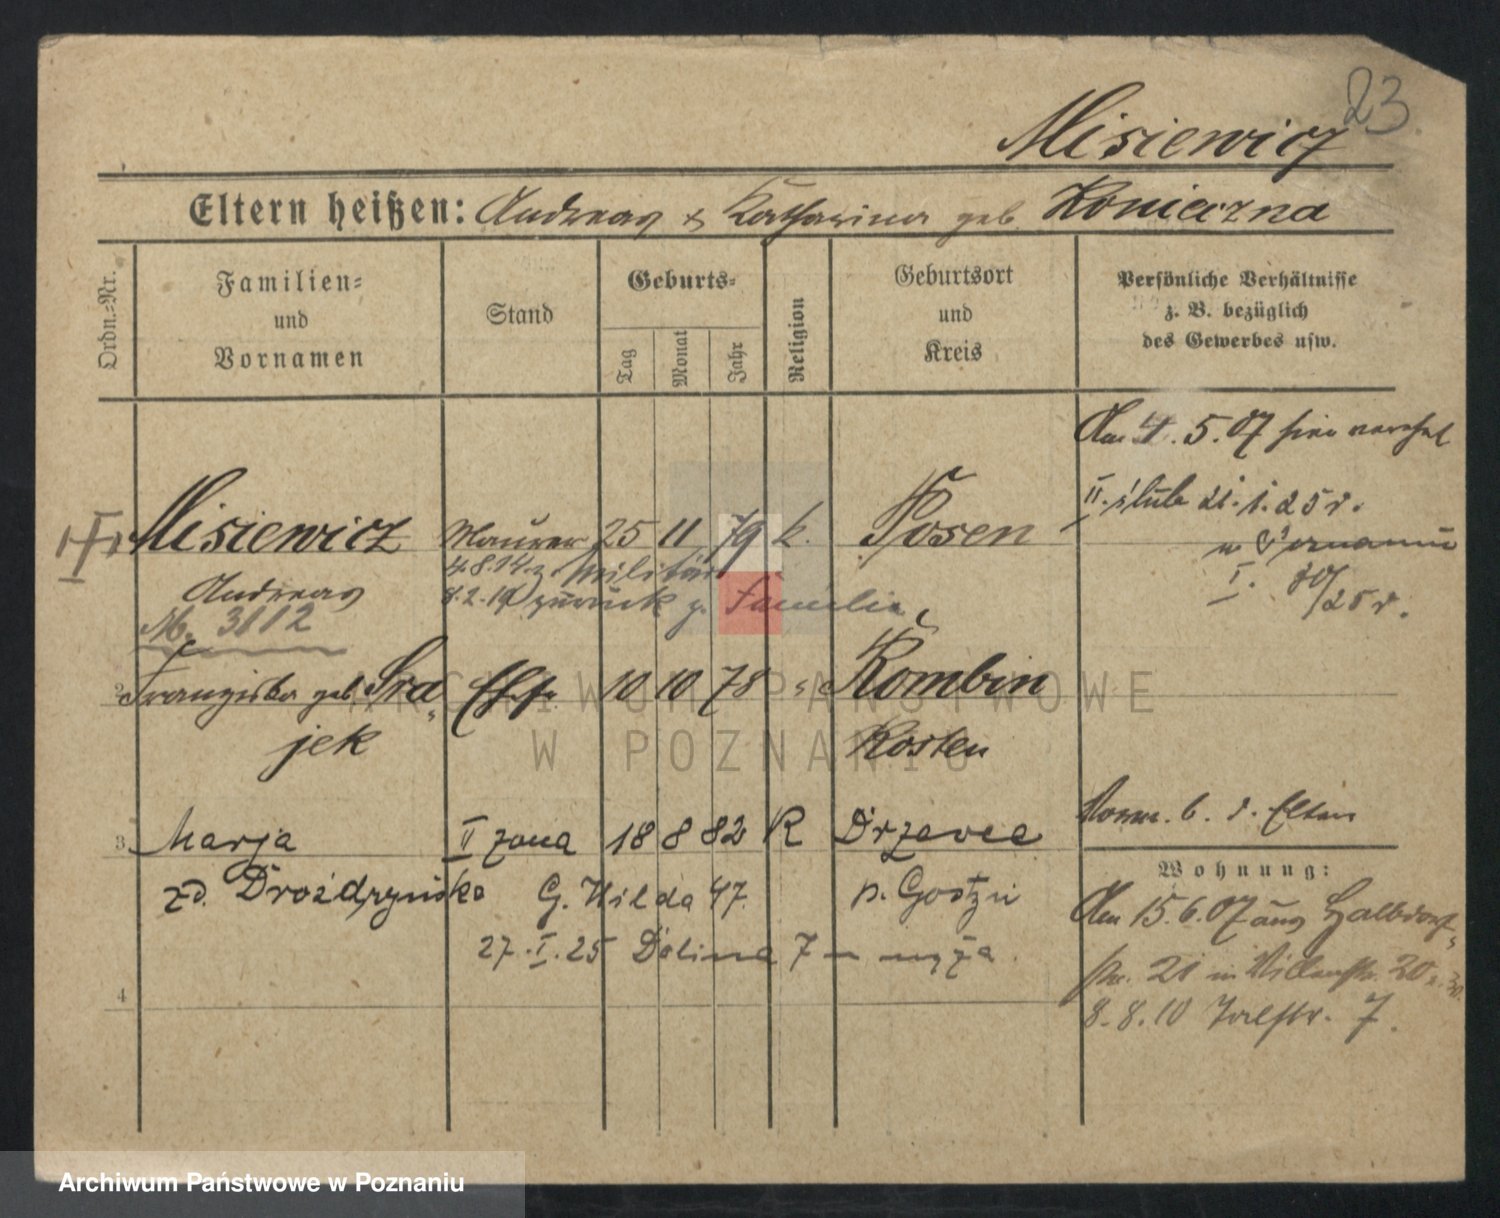 23
Misiewicz
Eltern heißen: Andreas & Katharina geb. Konieczna
Ordn.=Nr.
Familien=
und
Vornamen
Stand
Geburts=
Tag
Monat
Jahr
Religion
Geburtsort
und
Kreis
Persönliche Verhältnisse
z. B. bezüglich
des Gewerbes usw.
Am 4.5.07 hier
II. ślub 21.1.25 r.
w Poznaniu
I. 80/25 r.
Misiewicz Maurer 25 11 79 k. Posen
Andreas
4.8.14 z. Militär
8.2.19 zurück z. Familie
3112
2 Franziska geb. Sra- Ehefr. 10 10 78 Kombin
jek Kosten
Vorm. b. d. Eltern
3 Marja II żona 18 8 82 R Drzewce
zd. Drożdzyńska G. Wilda 47. p. Gostyń
27.I.25 Dolina 7
4
Wohnung:
Am 15.6.07 aus Halbdorf-
str. 21 in 20
8.8.10 Talstr. 7.
ARCHIWUM PAŃSTWOWE
W POZNANIU
Archiwum Państwowe w Poznaniu